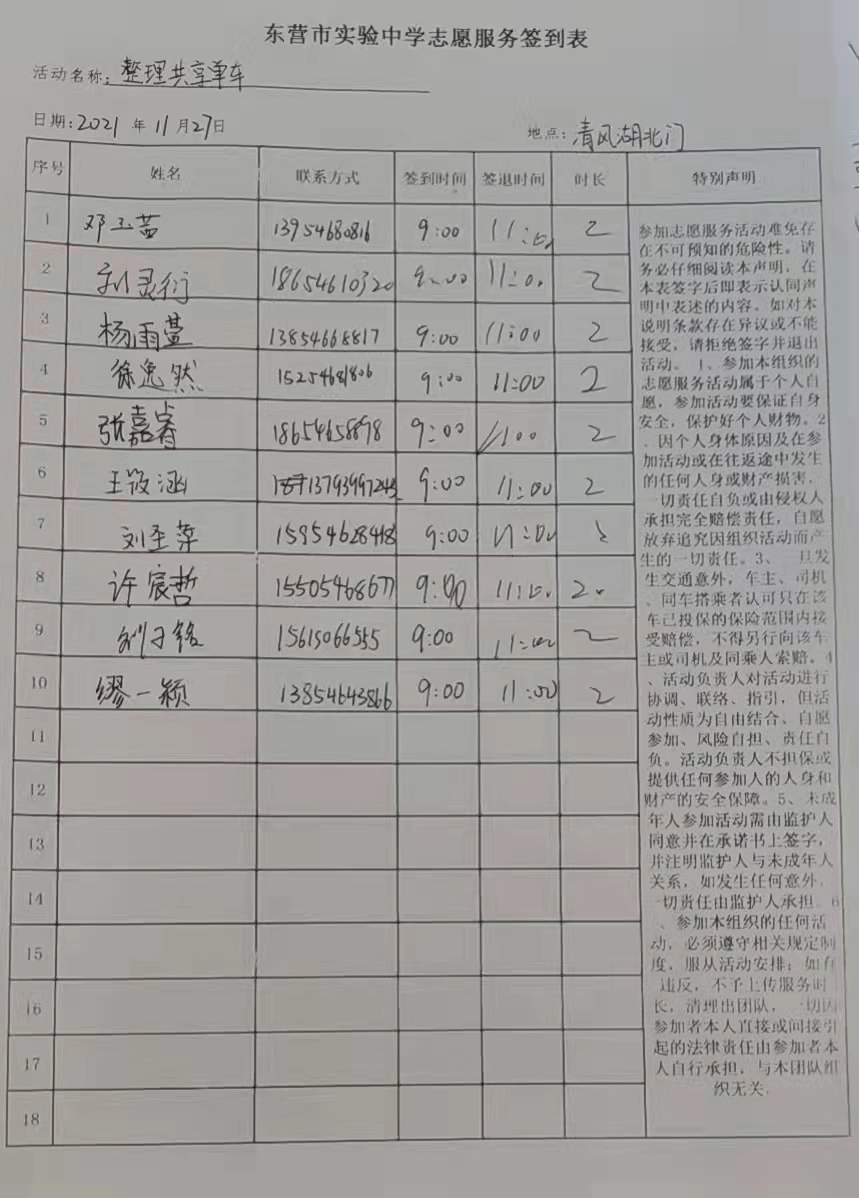 东营市实验中学志愿服务签到表
活动名称:整理共享单车
日期:2021年11月27日 地点:清风湖北门
序号 姓名 联系方式 签到时间 签退时间 时长 特别声明
1 邓玉茜 13954680816 9:00 11:00 2
2 刘灵衍 18654610320 9:00 11:00 2
3 杨雨萱 13854668817 9:00 11:00 2
4 徐逸然 15254681806 9:00 11:00 2
5 张嘉睿 18654658898 9:00 11:00 2
6 王筱涵 9:00 11:00 2
7 刘至萍 15954628418 9:00 11:00 2
8 许宸哲 15505468677 9:00 11:00 2.
9 15615066555 9:00 11:00 2
10 缪一颖 13854643866 9:00 11:00 2
11
12
13
14
15
16
17
18
参加志愿服务活动难免存
在不可预知的危险性。请
务必仔细阅读本声明,在
本表签字后即表示认同声
明中表述的内容。如对本
说明条款存在异议或不能
接受,请拒绝签字并退出
活动。1、参加本组织的
志愿服务活动属于个人自
愿,参加活动要保证自身
安全,保护好个人财物。2
、因个人身体原因及在参
加活动或在往返途中发生
的任何人身或财产损害,
一切责任自负或由侵权人
承担完全赔偿责任,自愿
放弃追究因组织活动而产
生的一切责任。3、一旦发
生交通意外,车主、司机
、同车搭乘者认可只在该
车已投保的保险范围内接
受赔偿,不得另行向该车
主或司机及同乘人索赔。4
、活动负责人对活动进行
协调、联络、指引,但活
动性质为自由结合、自愿
参加、风险自担、责任自
负。活动负责人不担保或
提供任何参加人的人身和
财产的安全保障。5、未成
年人参加活动需由监护人
同意并在承诺书上签字,
并注明监护人与未成年人
关系,如发生任何意外,
一切责任由监护人承担。6
、参加本组织的任何活
动,必须遵守相关规定制
度,服从活动安排;如有
违反,不予上传服务时
长,清理出团队,一切因
参加者本人直接或间接引
起的法律责任由参加者本
人自行承担,与本团队组
织无关.